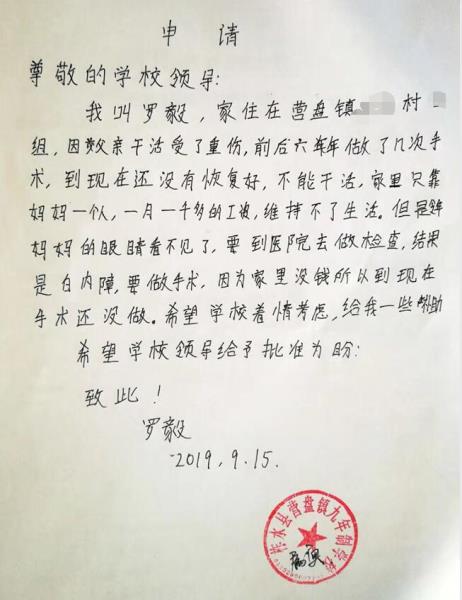 申 请
尊敬的学校领导:
我叫罗毅，家住在营盘镇 村
组，因父亲干活受了重伤，前后六年做了几次手
术，到现在还没有恢复好，不能干活，家里只靠
妈妈一个人，一月一千多的工资，维持不了生活。但是
妈妈的眼睛看不见了，要到医院去做检查，结果
是白内障，要做手术，因为家里没钱所以到现在
手术还没做。希望学校着情考虑，给我一些帮助
希望学校领导给予批准为盼:
致此！
罗毅
2019.9.15.
柞水县营盘镇九年制学校